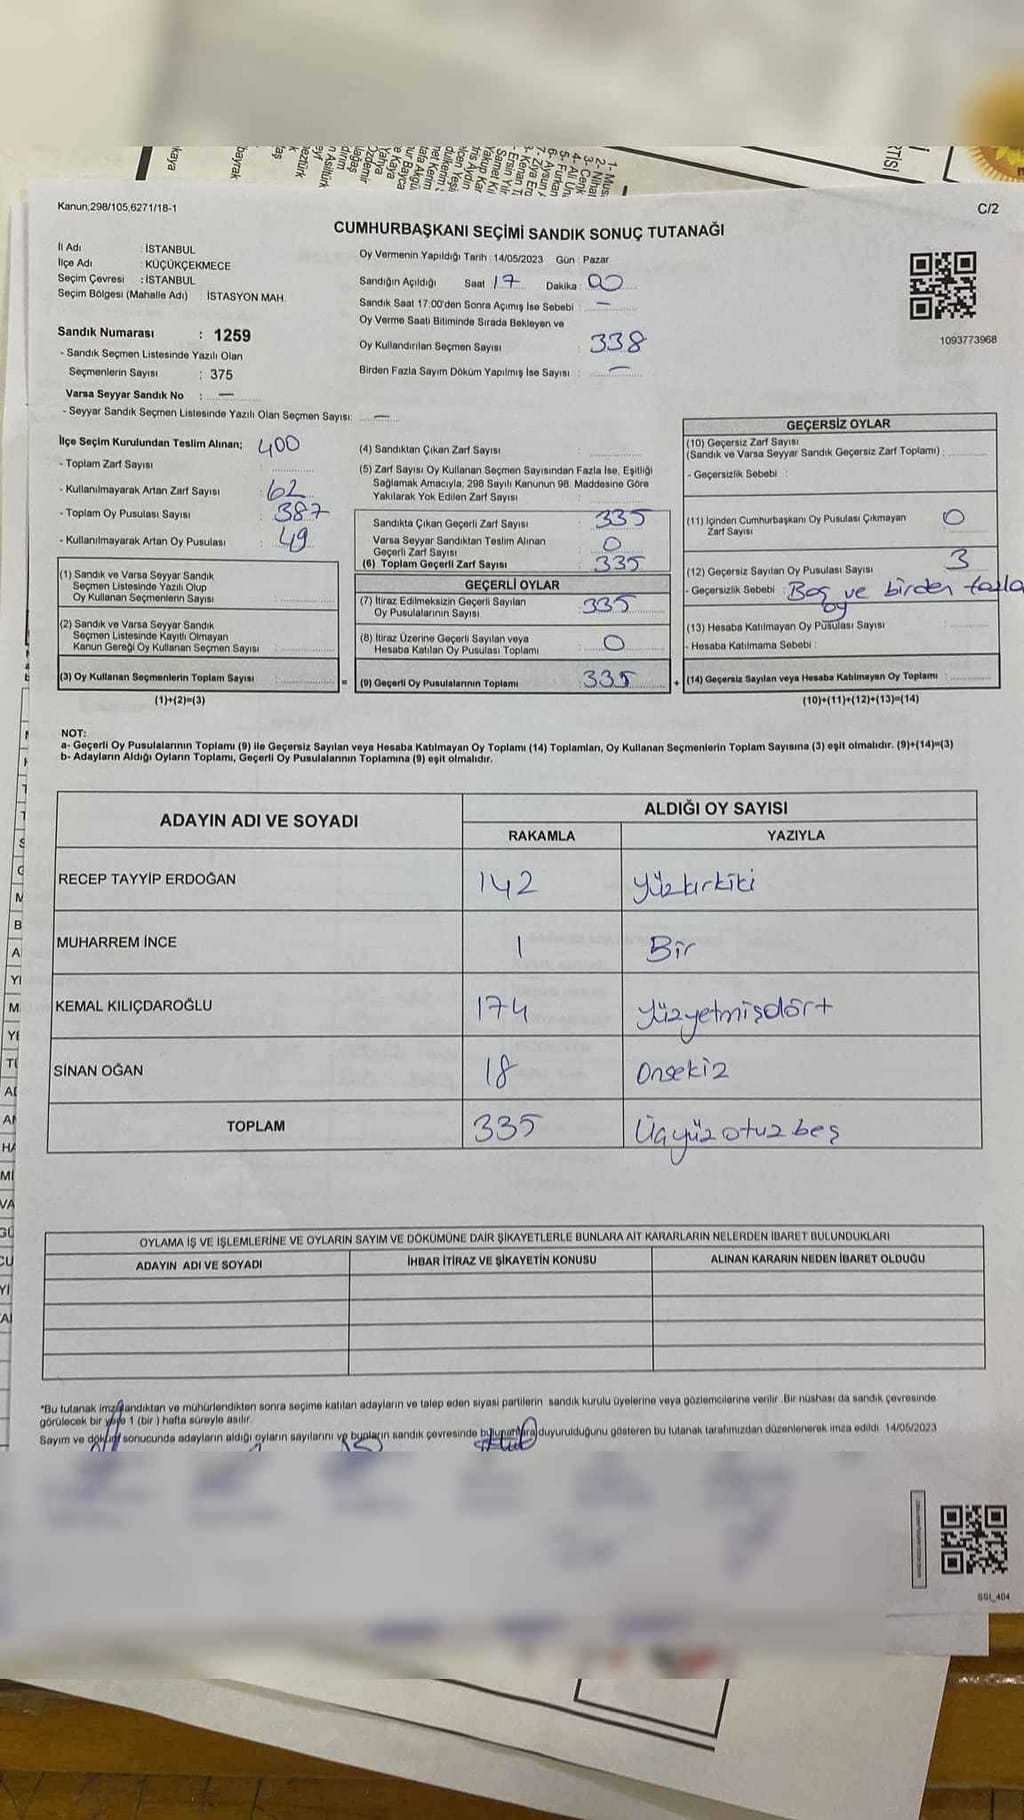 Kanun;298/105,6271/18-1
C/2
CUMHURBAŞKANI SEÇİMİ SANDIK SONUÇ TUTANAĞI
İl Adı : İSTANBUL
İlçe Adı : KÜÇÜKÇEKMECE
Seçim Çevresi : İSTANBUL
Seçim Bölgesi (Mahalle Adı) : İSTASYON MAH.
Sandık Numarası : 1259
- Sandık Seçmen Listesinde Yazılı Olan
Seçmenlerin Sayısı : 375
Varsa Seyyar Sandık No : —
- Seyyar Sandık Seçmen Listesinde Yazılı Olan Seçmen Sayısı: —
Oy Vermenin Yapıldığı Tarih : 14/05/2023 Gün : Pazar
Sandığın Açıldığı Saat 17 Dakika : 00
Sandık Saat 17:00'den Sonra Açımış İse Sebebi : —
Oy Verme Saati Bitiminde Sırada Bekleyen ve
Oy Kullandırılan Seçmen Sayısı : 338
Birden Fazla Sayım Döküm Yapılmış İse Sayısı : —
1093773968
İlçe Seçim Kurulundan Teslim Alınan; 400
- Toplam Zarf Sayısı
- Kullanılmayarak Artan Zarf Sayısı : 62
- Toplam Oy Pusulası Sayısı : 387
- Kullanılmayarak Artan Oy Pusulası : 49
(1) Sandık ve Varsa Seyyar Sandık
Seçmen Listesinde Yazılı Olup
Oy Kullanan Seçmenlerin Sayısı :
(2) Sandık ve Varsa Seyyar Sandık
Seçmen Listesinde Kayıtlı Olmayan
Kanun Gereği Oy Kullanan Seçmen Sayısı :
(3) Oy Kullanan Seçmenlerin Toplam Sayısı :
(1)+(2)=(3)
=
(4) Sandıktan Çıkan Zarf Sayısı :
(5) Zarf Sayısı Oy Kullanan Seçmen Sayısından Fazla İse, Eşitliği
Sağlamak Amacıyla, 298 Sayılı Kanunun 98. Maddesine Göre
Yakılarak Yok Edilen Zarf Sayısı :
Sandıkta Çıkan Geçerli Zarf Sayısı : 335
Varsa Seyyar Sandıktan Teslim Alınan
Geçerli Zarf Sayısı : 0
(6) Toplam Geçerli Zarf Sayısı : 335
GEÇERLİ OYLAR
(7) İtiraz Edilmeksizin Geçerli Sayılan
Oy Pusulalarının Sayısı : 335
(8) İtiraz Üzerine Geçerli Sayılan veya
Hesaba Katılan Oy Pusulası Toplamı : 0
(9) Geçerli Oy Pusulalarının Toplamı : 335
+
GEÇERSİZ OYLAR
(10) Geçersiz Zarf Sayısı
(Sandık ve Varsa Seyyar Sandık Geçersiz Zarf Toplamı) :
- Geçersizlik Sebebi :
(11) İçinden Cumhurbaşkanı Oy Pusulası Çıkmayan
Zarf Sayısı : 0
(12) Geçersiz Sayılan Oy Pusulası Sayısı : 3
- Geçersizlik Sebebi : Boş ve birden fazla
oy
(13) Hesaba Katılmayan Oy Pusulası Sayısı :
- Hesaba Katılmama Sebebi :
(14) Geçersiz Sayılan veya Hesaba Katılmayan Oy Toplamı :
(10)+(11)+(12)+(13)=(14)
NOT:
a- Geçerli Oy Pusulalarının Toplamı (9) ile Geçersiz Sayılan veya Hesaba Katılmayan Oy Toplamı (14) Toplamları, Oy Kullanan Seçmenlerin Toplam Sayısına (3) eşit olmalıdır. (9)+(14)=(3)
b- Adayların Aldığı Oyların Toplamı, Geçerli Oy Pusulalarının Toplamına (9) eşit olmalıdır.
ADAYIN ADI VE SOYADI ALDIĞI OY SAYISI
RAKAMLA YAZIYLA
RECEP TAYYİP ERDOĞAN 142 Yüzkırkiki
MUHARREM İNCE 1 Bir
KEMAL KILIÇDAROĞLU 174 Yüzyetmişdört
SİNAN OĞAN 18 Onsekiz
TOPLAM 335 Üçyüzotuzbeş
OYLAMA İŞ VE İŞLEMLERİNE VE OYLARIN SAYIM VE DÖKÜMÜNE DAİR ŞİKAYETLERLE BUNLARA AİT KARARLARIN NELERDEN İBARET BULUNDUKLARI
ADAYIN ADI VE SOYADI İHBAR İTİRAZ VE ŞİKAYETİN KONUSU ALINAN KARARIN NEDEN İBARET OLDUĞU
*Bu tutanak imzalandıktan ve mühürlendikten sonra seçime katılan adayların ve talep eden siyasi partilerin sandık kurulu üyelerine veya gözlemcilerine verilir. Bir nüshası da sandık çevresinde
görülecek bir yere 1 (bir ) hafta süreyle asılır.
Sayım ve döküm sonucunda adayların aldığı oyların sayılarını ve bunların sandık çevresinde bulunanlara duyurulduğunu gösteren bu tutanak tarafımızdan düzenlenerek imza edildi. 14/05/2023
SSI_404